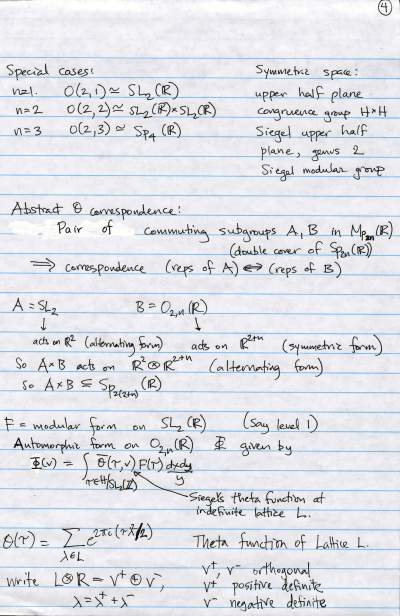 4
Special cases: Symmetric space:
n=1. O(2,1) ≃ SL₂(ℝ) upper half plane
n=2 O(2,2) ≃ SL₂(ℝ)×SL₂(ℝ) congruence group H×H
n=3 O(2,3) ≃ Sp₄(ℝ) Siegel upper half
plane, genus 2
Siegel modular group
Abstract θ correspondence:
Pair of commuting subgroups A, B in Mp₂ₙ(ℝ)
(double cover of Sp₂ₙ(ℝ))
⟹ correspondence (reps of A) ⟷ (reps of B)
A = SL₂ B = O₂,ₙ(ℝ)
↓ ↓
acts on ℝ² (alternating form) acts on ℝ²⁺ⁿ (symmetric form)
So A×B acts on ℝ²⊗ℝ²⁺ⁿ (alternating form)
so A×B ⊆ Sp₂₍₂₊ₙ₎(ℝ)
F = modular form on SL₂(ℝ) (Say level 1)
Automorphic form on O₂,ₙ(ℝ) Φ given by
Φ(v) = ∫_{τ∈H/SL₂(ℤ)} Θ̄(τ,v) F(τ) dxdy/y
Siegel's theta function at
indefinite lattice L.
Θ(τ) = Σ_{λ∈L} e^{2πi(τλ²/2)} Theta function of Lattice L.
write L⊗ℝ = v⁺⊕v⁻, v⁺, v⁻ orthogonal
v⁺ positive definite
λ = λ⁺+λ⁻ v⁻ negative definite